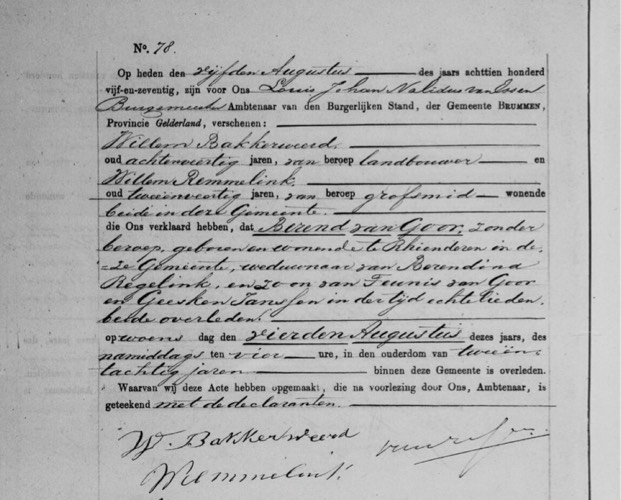 No. 78.
Op heden den vijfden Augustus des jaars achttien honderd
vijf-en-zeventig, zijn voor Ons Louis Johan Nalidus van Essen
Burgemeester Ambtenaar van den Burgerlijken Stand, der Gemeente BRUMMEN,
Provincie Gelderland, verschenen:
Willem Bakkerweerd.
oud achtenveertig jaren, van beroep landbouwer en
Willem Remmelink.
oud tweeenveertig jaren, van beroep grofsmid wonende
beide in deze Gemeente.
die Ons verklaard hebben, dat Berend van Goor, zonder
beroep, geboren en wonende te Rhienderen in de-
=ze Gemeente, weduwnaar van Berendina
Regelink, en zoon van Teunis van Goor
en Geesken Janssen in der tijd echtelieden,
beide overleden.
op woens dag den vierden Augustus dezes jaars, des
namiddags ten vier ure, in den ouderdom van tweeën-
tachtig jaren binnen deze Gemeente is overleden.
Waarvan wij deze Acte hebben opgemaakt, die na voorlezing door Ons, Ambtenaar, is
geteekend met de declaranten.
W. Bakkerweerd
W Remmelink